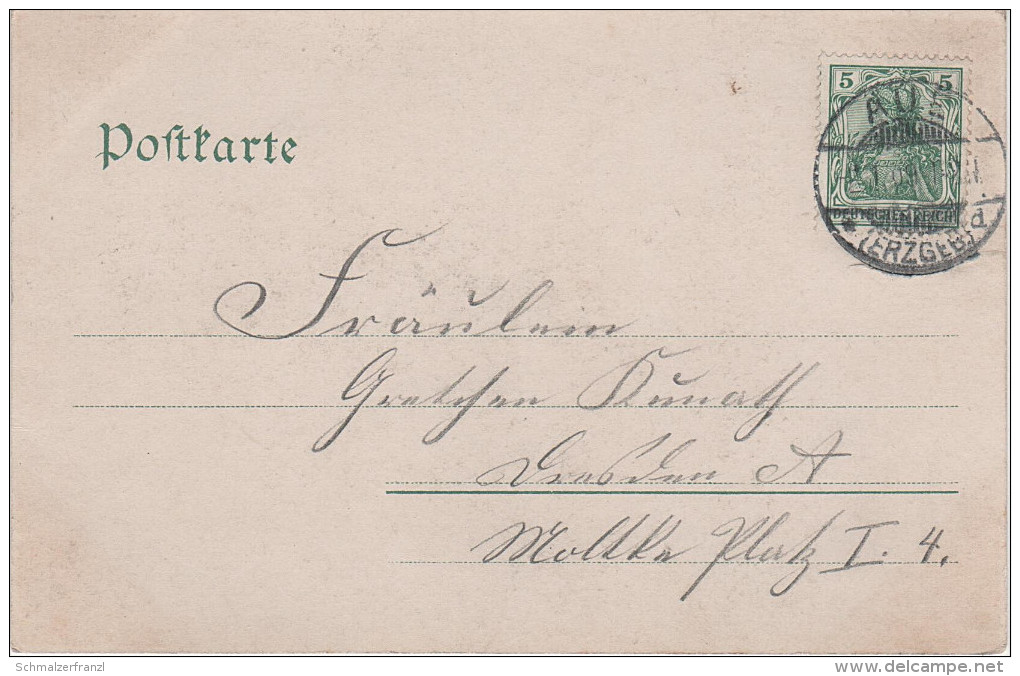 Postkarte
5 5
DEUTSCHES REICH
AUE
(ERZGEB)
d
Fräulein
Gretchen Kunath
Dresden A
Moltke Platz I. 4.
Schmalzerfranzl
www.delcampe.net